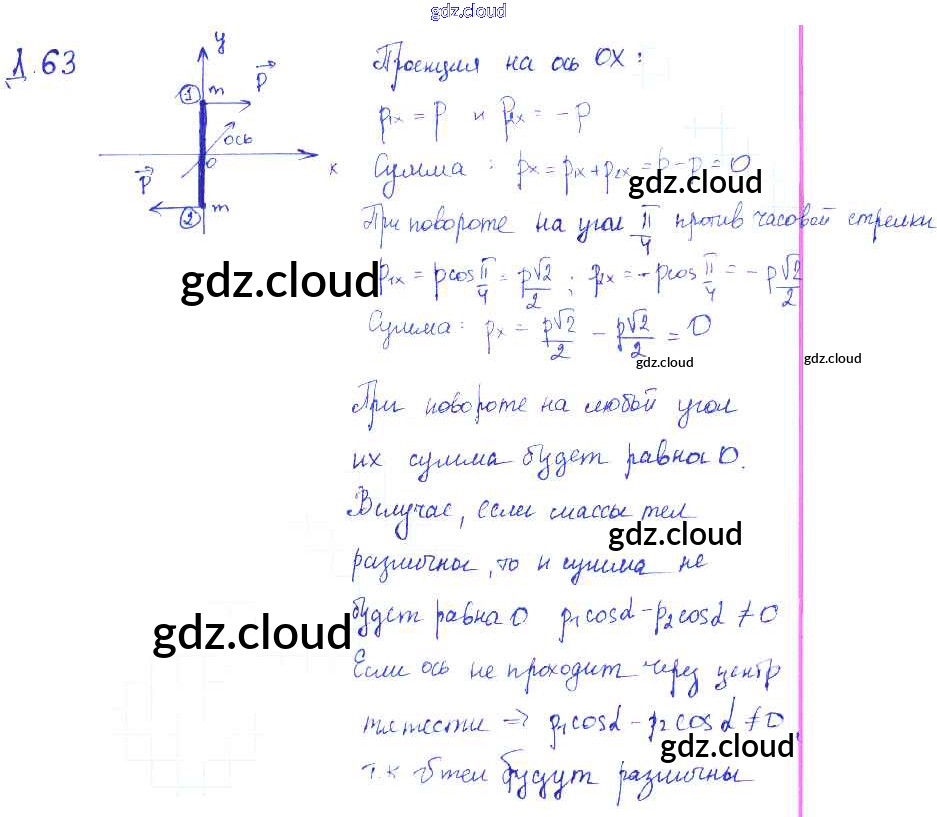 gdz.cloud
Д.63
y
① m p⃗
ось
O
x
p⃗
② m
Проекция на ось OX:
p₁ₓ = p и p₂ₓ = -p
Сумма: pₓ = p₁ₓ + p₂ₓ = p - p = 0
gdz.cloud
При повороте на угол π/4 против часовой стрелки
gdz.cloud
p₁ₓ = p cos π/4 = p√2/2 ; p₂ₓ = -p cos π/4 = -p√2/2
Сумма: pₓ = p√2/2 - p√2/2 = 0
gdz.cloud
gdz.cloud
При повороте на любой угол
их сумма будет равна 0.
В случае, если массы тел
gdz.cloud
различны, то и сумма не
будет равна 0 p₁cosα - p₂cosα ≠ 0
gdz.cloud
Если ось не проходит через центр
тяжести ⇒ p₁cosα - p₂cosα ≠ 0,
gdz.cloud
т.к тел будут различны